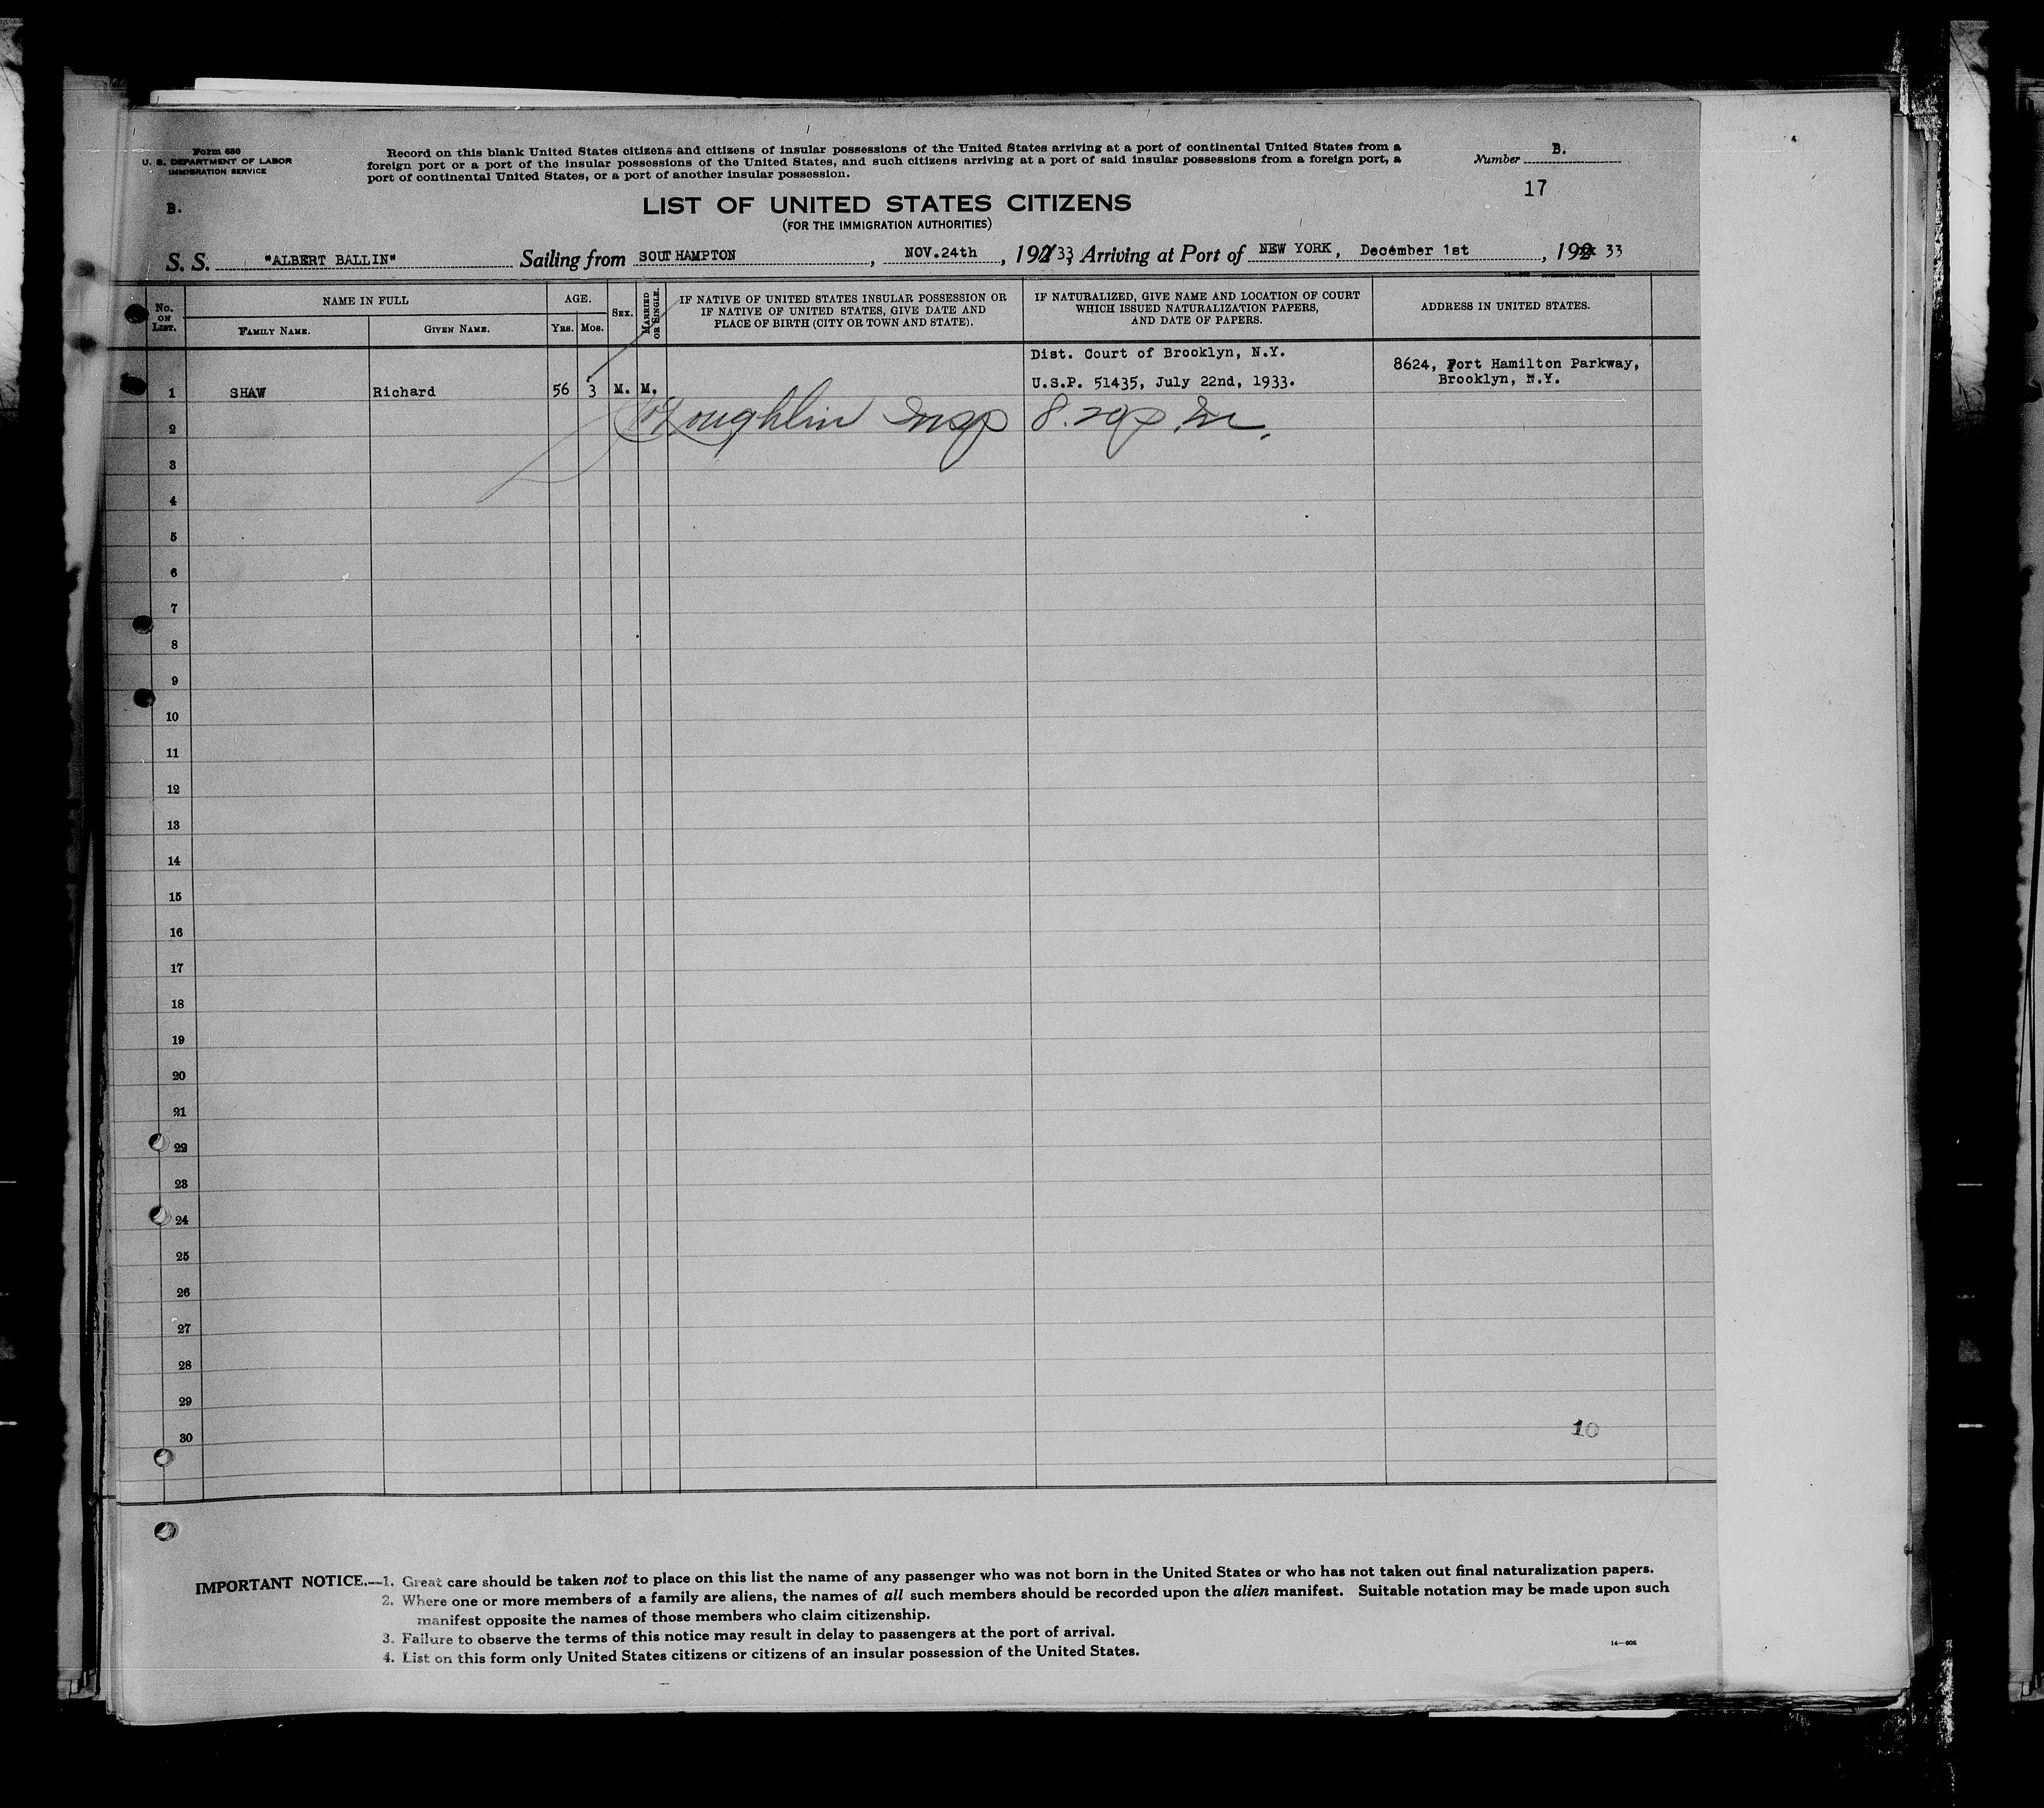 Form 630
U. S. DEPARTMENT OF LABOR
IMMIGRATION SERVICE
Record on this blank United States citizens and citizens of insular possessions of the United States arriving at a port of continental United States from a
foreign port or a port of the insular possessions of the United States, and such citizens arriving at a port of said insular possessions from a foreign port, a
port of continental United States, or a port of another insular possession.
Number B.
17
B.
LIST OF UNITED STATES CITIZENS
(FOR THE IMMIGRATION AUTHORITIES)
S. S. "ALBERT BALLIN" Sailing from SOUTHAMPTON, NOV.24th, 192 33, Arriving at Port of NEW YORK, December 1st, 192 33
No. ON LIST.
NAME IN FULL
FAMILY NAME.
GIVEN NAME.
AGE.
YRS.
MOS.
SEX.
MARRIED OR SINGLE.
IF NATIVE OF UNITED STATES INSULAR POSSESSION OR
IF NATIVE OF UNITED STATES, GIVE DATE AND
PLACE OF BIRTH (CITY OR TOWN AND STATE).
IF NATURALIZED, GIVE NAME AND LOCATION OF COURT
WHICH ISSUED NATURALIZATION PAPERS,
AND DATE OF PAPERS.
ADDRESS IN UNITED STATES.
Dist. Court of Brooklyn, N.Y.
8624, Fort Hamilton Parkway,
1 SHAW Richard 56 3 M. M. U.S.P. 51435, July 22nd, 1933. Brooklyn, N.Y.
2
3
4
5
6
7
8
9
10
11
12
13
14
15
16
17
18
19
20
21
22
23
24
25
26
27
28
29
30
10
IMPORTANT NOTICE.—1. Great care should be taken not to place on this list the name of any passenger who was not born in the United States or who has not taken out final naturalization papers.
2. Where one or more members of a family are aliens, the names of all such members should be recorded upon the alien manifest. Suitable notation may be made upon such
manifest opposite the names of those members who claim citizenship.
3. Failure to observe the terms of this notice may result in delay to passengers at the port of arrival.
4. List on this form only United States citizens or citizens of an insular possession of the United States.
14—606